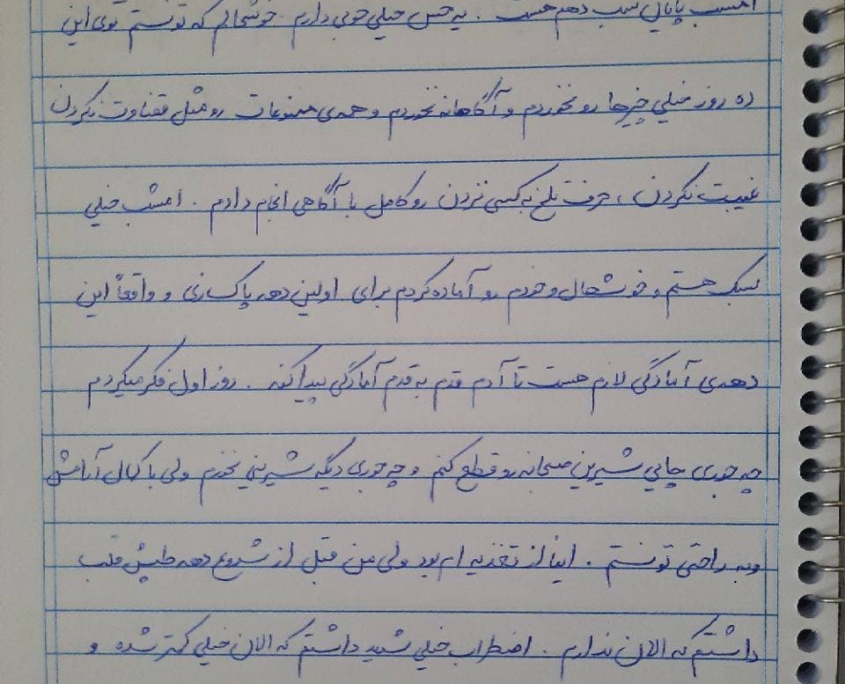 امشب پایان شب دهم هست . یه حس خیلی خوبی دارم خوشحالم که تونستم توی این
ده روز خیلی چیزها رو نخوردم و آگاهانه نخوردم و همه‌ی ممنوعات رو مثل قضاوت نکردن
غیبت نکردن ، حرف تلخ به کسی نزدن رو کامل با آگاهی انجام دادم . امشب خیلی
سبک هستم و خوشحال و خودم رو آماده کردم برای اولین دهه پاکسازی و واقعاً این
دهه‌ی آمادگی لازم هست تا آدم قدم به قدم آمادگی پیدا کنه . روز اول فکر میکردم
چه جوری چایی شیرین صبحانه رو قطع کنم و چه جوری دیگه شیرینی نخورم ولی با کمال آرامش
و به راحتی تونستم . اینا از تغذیه ام بود ولی من قبل از شروع دهه طپش قلب
داشتم که الان ندارم . اضطراب خیلی شدید داشتم که الان خیلی کمتر شده و